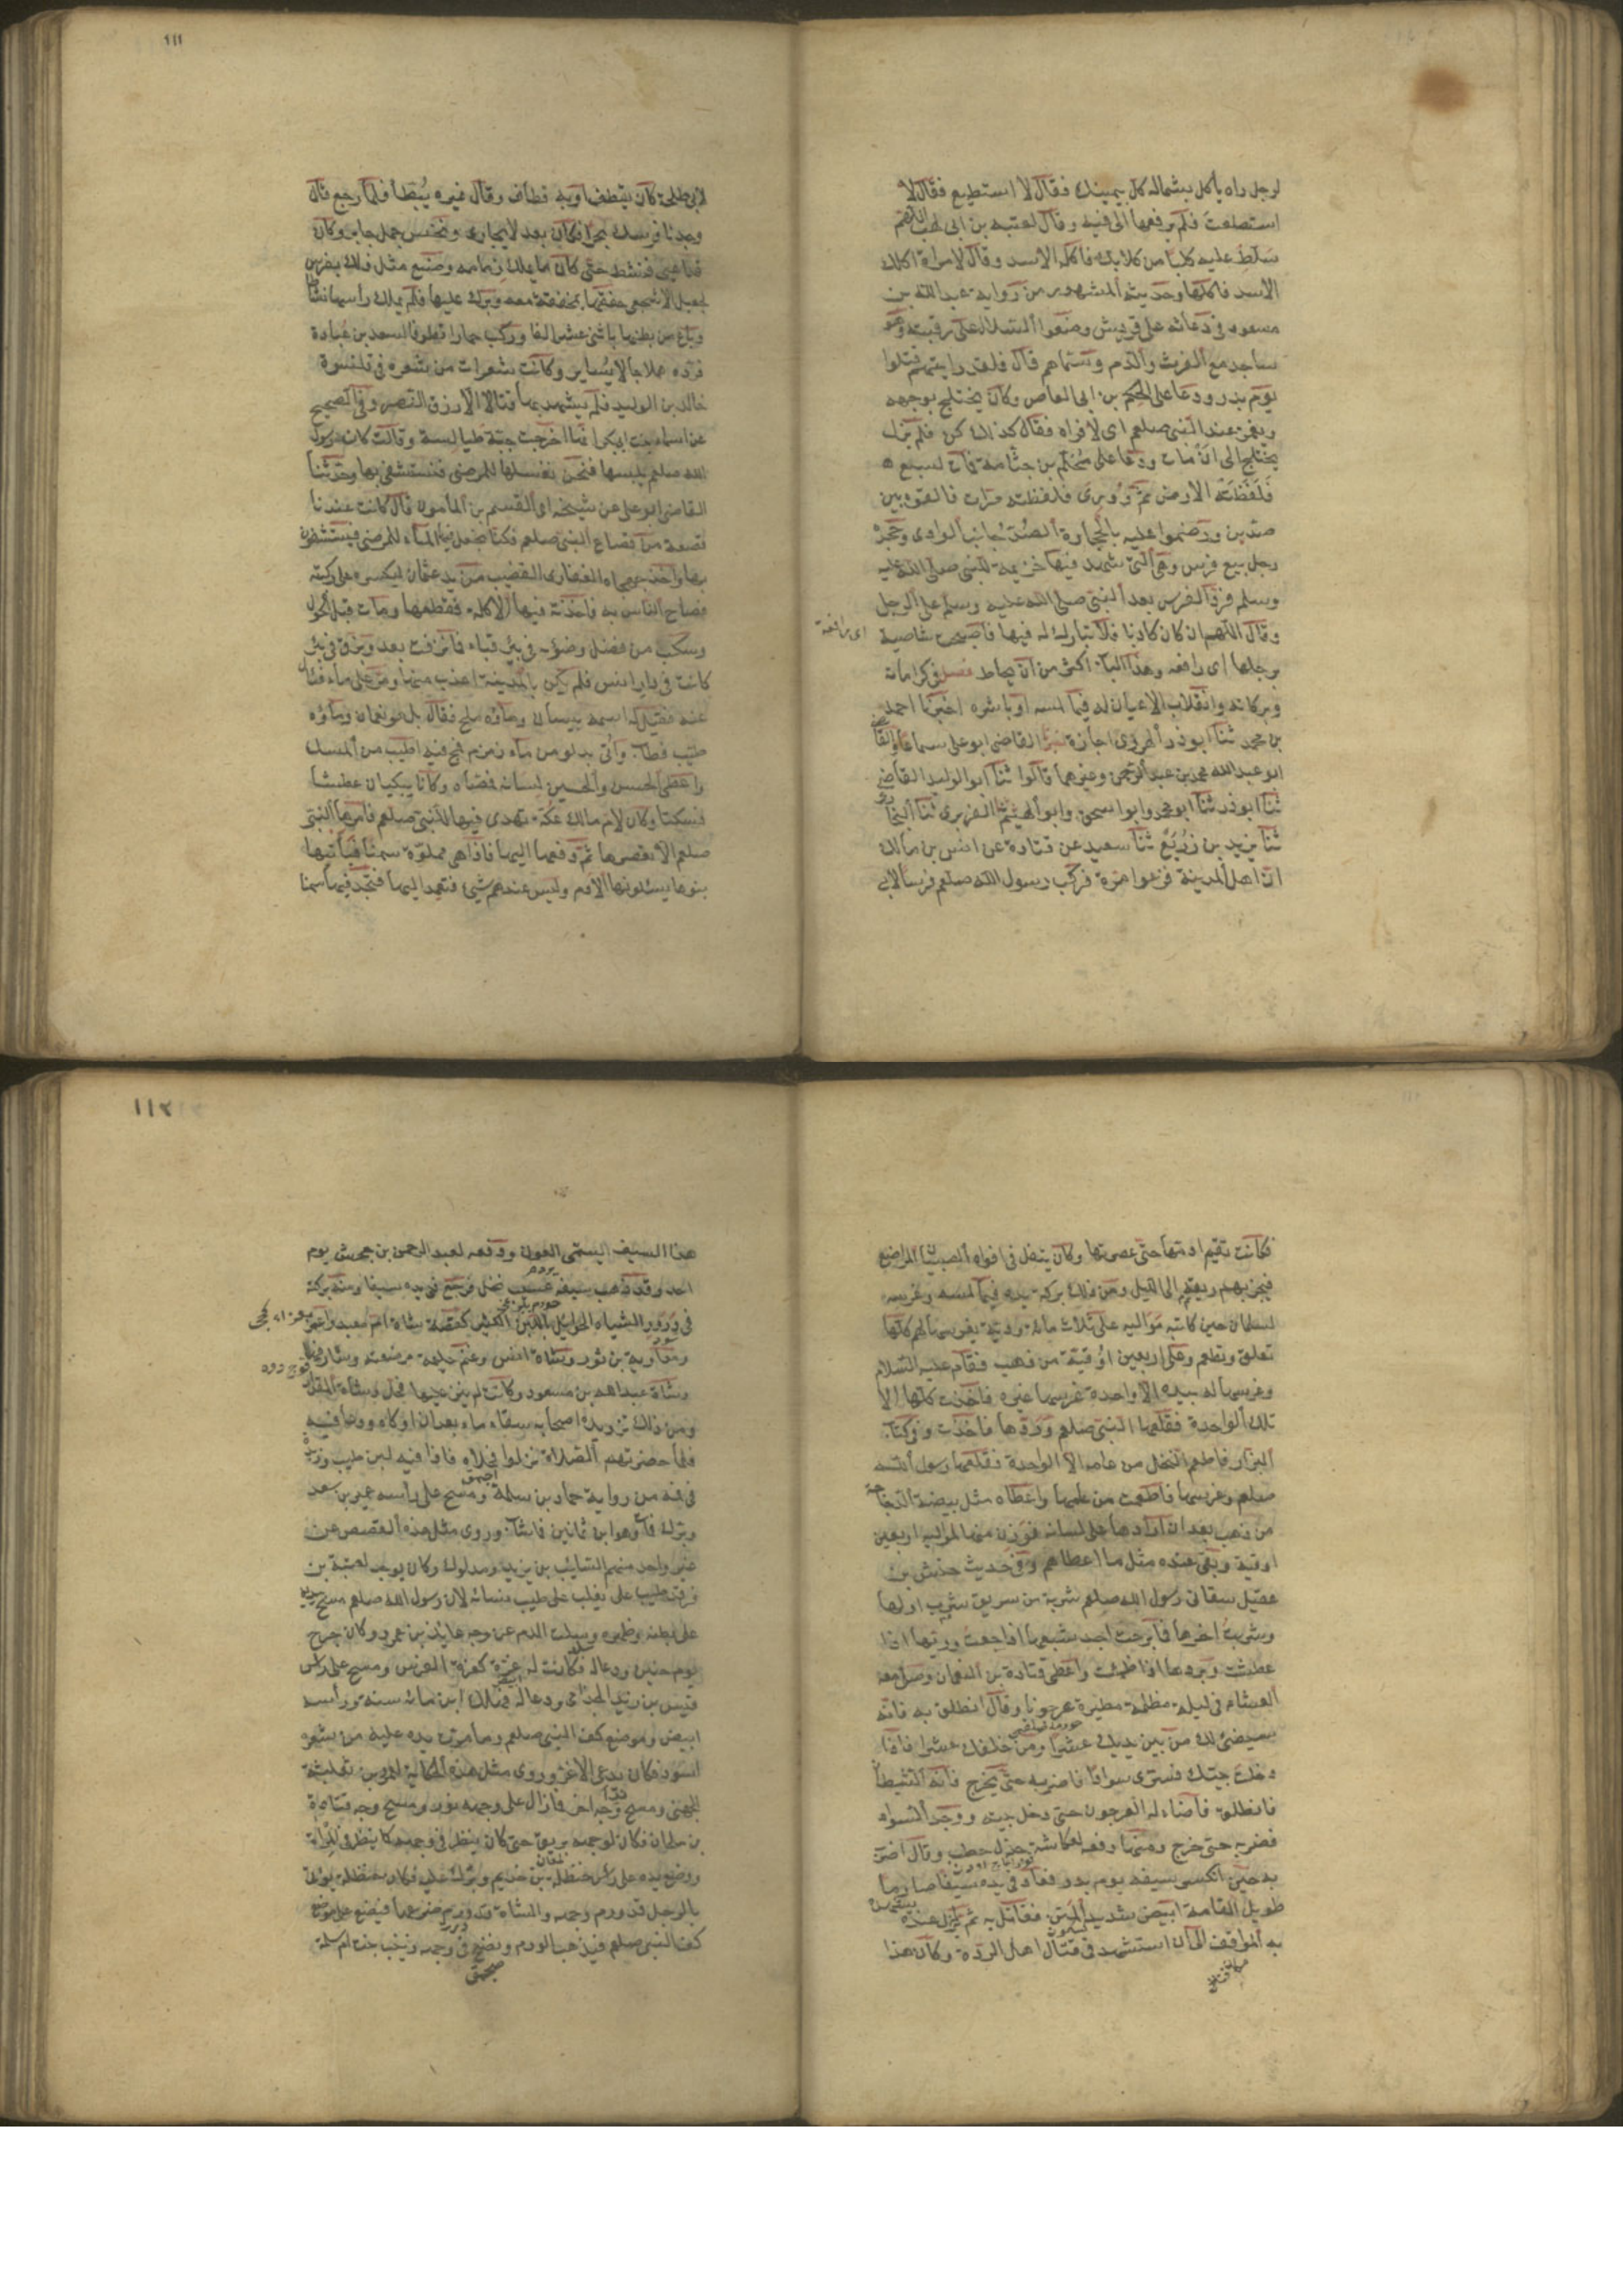 لرجل راه يأكل بشماله كل بيمينك فقال لا استطيع فقال لا
استطعت فلم يرفعها الى فيه وقال لعتبة بن ابى لهب اللهم
سلط عليه كلبا من كلابك فاكله الاسد وقال لامراة اكلك
الاسد فاكلها وحديثه المشهور من رواية عبد الله بن
مسعود فى دعائه على قريش وضعوا السلا على رقبته وهو
ساجد مع الفرث والدم وسماهم قال فلقد رايتهم قتلوا
يوم بدر ودعا على الحكم بن ابى العاص وكان يختلج بوجهه
ويغمز عند النبى صلعم اى لا فراه فقال كذلك كن فلم يزل
يختلج الى ان مات ودعا على محلم بن جثامة فمات لسبع
فلفظته الارض ثم وورى فلفظته مرات فالقوه بين
صدين ورضموا عليه بالحجارة الصد جانب الوادى وجحده
رجل بيع فرس وهى التى شهد فيها خزيمة للنبى صلى الله عليه
وسلم فرد الفرس بعد النبى صلى الله عليه وسلم على الرجل
وقال اللهم ان كان كاذبا فلا تبارك له فيها فاصبحت شاصية
برجلها اى رافعة وهذا الباب اكثر من ان يحاط فصل فى كراماته
وبركاته وانقلاب الاعيان له فيما لمسه او باشره اخبرنا احمد
بن محمد ثنا ابو ذر الهروى اجازة ثنا القاضى ابو على سماعا والقاضى
ابو عبد الله محمد بن عبد الرحمن وغيرهما قالوا ثنا ابو الوليد القاضى
ثنا ابو ذر ثنا ابو محمد وابو اسحق وابو الهيثم ثنا الفربرى ثنا البخارى
ثنا يزيد بن زريع ثنا سعيد عن قتادة عن انس بن مالك
ان اهل المدينة فزعوا مرة فركب رسول الله صلعم فرسا لابى
اى رافعة
١١١
لابى طلحة كان يقطف او به قطاف وقال غيره يبطأ فلما رجع قال
وجدنا فرسك بحرا فكان بعد لا يجارى ونخس جمل جابر وكان
قد اعيى فنشط حتى كان ما يملك زمامه وصنع مثل ذلك بفرس
لجعيل الاشجعى خفقها بمخفقة معه وبرك عليها فلم يملك راسها نشاطا
وباع من بطنها باثنى عشر الفا وركب حمارا قطوفا لسعد بن عبادة
فرده هملاجا لا يساير وكانت شعرات من شعره فى قلنسوة
خالد بن الوليد فلم يشهد بها قتالا الا رزق النصر وفى الصحيح
عن اسماء بنت ابى بكر انها اخرجت جبة طيالسة وقالت كان رسول
الله صلعم يلبسها فنحن نغسلها للمرضى فنستشفى بها وحدثنا
القاضى ابو على عن شيخه ابى القسم بن المأمون قال كانت عندنا
قصعة من قصاع النبى صلعم فكنا نجعل فيها الماء للمرضى فيستشفون
بها واخذ جهجاه الغفارى القضيب من يد عثمان ليكسره على ركبته
فصاح الناس به فاخذته فيها الاكلة فقطعها ومات قبل الحول
وسكب من فضل وضوئه فى بئر قباء فما نزفت بعد وبزق فى بئر
كانت فى دار انس فلم يكن بالمدينة اعذب منها ومر على ماء فسأل
عنه فقيل له اسمه بيسان وماؤه ملح فقال بل هو نعمان وماؤه
طيب فطاب واتى بدلو من ماء زمزم فمج فيه اطيب من المسك
واعطى الحسن والحسين لسانه فمصاه وكانا يبكيان عطشا
فسكتا وكان لام مالك عكة تهدى فيها للنبى صلعم فامرها النبى
صلعم الا تعصرها ثم دفعها اليها فاذا هى مملوة سمنا فيأتيها
بنوها يسئلونها الادم وليس عندهم شئ فتعمد اليها فتجد فيها سمنا
فكانت تقيم ادمها حتى عصرتها وكان يتفل فى افواه الصبيان المراضع
فيجزيهم ريقه الى الليل ومن ذلك بركة يده فيما لمسه وغرسه
لسلمان حين كاتبه مواليه على ثلاث مائة ودية يغرسها لهم كلها
تعلق وتطعم وعلى اربعين اوقية من ذهب فقام عليه السلام
وغرسها له بيده الا واحدة غرسها غيره فاخذت كلها الا
تلك الواحدة فقلعها النبى صلعم وردها فاخذت وفى كتاب
البزار فاطعم النخل من عامه الا الواحدة فقلعها رسول الله
صلعم وغرسها فاطعمت من عامها واعطاه مثل بيضة الدجاجة
من ذهب بعد ان ادارها على لسانه فوزن منها لمواليه اربعين
اوقية وبقى عنده مثل ما اعطاهم وفى حديث حنش بن
عقيل سقانى رسول الله صلعم شربة من سويق شرب اولها
وشربت اخرها فما برحت اجد شبعها اذا جعت وريها اذا
عطشت وبردها اذا ظمئت واعطى قتادة بن النعمان وصلى معه
العشاء فى ليلة مظلمة مطيرة عرجونا وقال انطلق به فانه
سيضئ لك من بين يديك عشرا ومن خلفك عشرا فاذا
دخلت بيتك فسترى سوادا فاضربه حتى يخرج فانه الشيطان
فانطلق فاضاء له العرجون حتى دخل بيته ووجد السواد
فضربه حتى خرج ومنها دفعه لعكاشة جذل حطب وقال اضرب
به حين انكسر سيفه يوم بدر فعاد فى يده سيفا صارما
طويل القامة ابيض شديد المتن فقاتل به ثم لم يزل عنده يشهد
به المواقف الى ان استشهد فى قتال اهل الردة وكان هذا
١١٢
هذا السيف يسمى العون ودفعه لعبد الله بن جحش يوم
احد وقد ذهب سيفه عسيب نخل فرجع فى يده سيفا ومنه بركته
فى درور الشياه الحوائل باللبن الكثير كقصة شاة ام معبد واعنز
معاوية بن ثور وشاة انس وغنم حليمة مرضعته وشارفها
وشاة عبد الله بن مسعود وكانت لم ينز عليها فحل وشاة المقداد
ومن ذلك تزويده اصحابه سقاء ماء بعد ان اوكاه ودعا فيه
فلما حضرتهم الصلاة نزلوا فحلوه فاذا فيه لبن طيب وزبدة
فى فمه من رواية حماد بن سلمة ومسح على رأس عمير بن سعد
وبرك فمات وهو ابن ثمانين فما شاب وروى مثل هذه القصص عن
غير واحد منهم السايب بن يزيد ومدلوك وكان يوجد لعتبة بن
فرقد طيب يغلب على طيب نسائه لان رسول الله صلعم مسح بيده
على بطنه وظهره وسلت الدم عن وجه عائذ بن عمرو وكان جرح
يوم حنين ودعا له فكانت له غرة كغرة الفرس ومسح على رأس
قيس بن زيد الجذامى ودعا له فهلك ابن مائة سنة ورأسه
ابيض وموضع كف النبى صلعم وما مرت يده عليه من شعره
اسود فكان يدعى الاغر وروى مثل هذه الحكاية لعمرو بن ثعلبة
الجهنى ومسح وجه اخر فما زال على وجهه نور ومسح وجه قتادة
بن ملحان فكان لوجهه بريق حتى كان ينظر فى وجهه كما ينظر فى المرآة
ووضع يده على رأس حنظلة بن حذيم وبرك عليه فكان حنظلة يؤتى
بالرجل قد ورم وجهه والشاة قد ورم ضرعها فيضع على موضع
كف النبى صلعم فيذهب الورم ونضح فى وجه زينب بنت ام سلمة